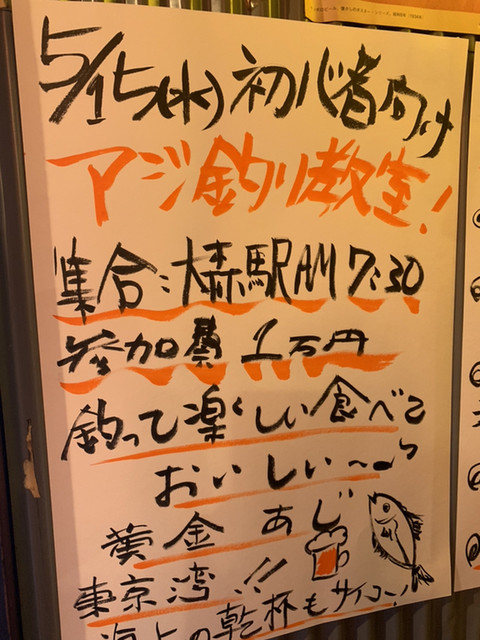 5/15(水)初心者向け
アジ釣り教室!
集合:大森駅AM7:30
参加費1万円
釣って楽しい食べて
おいしい〜
黄金あじ
東京湾!!
海上の乾杯もサイコー!